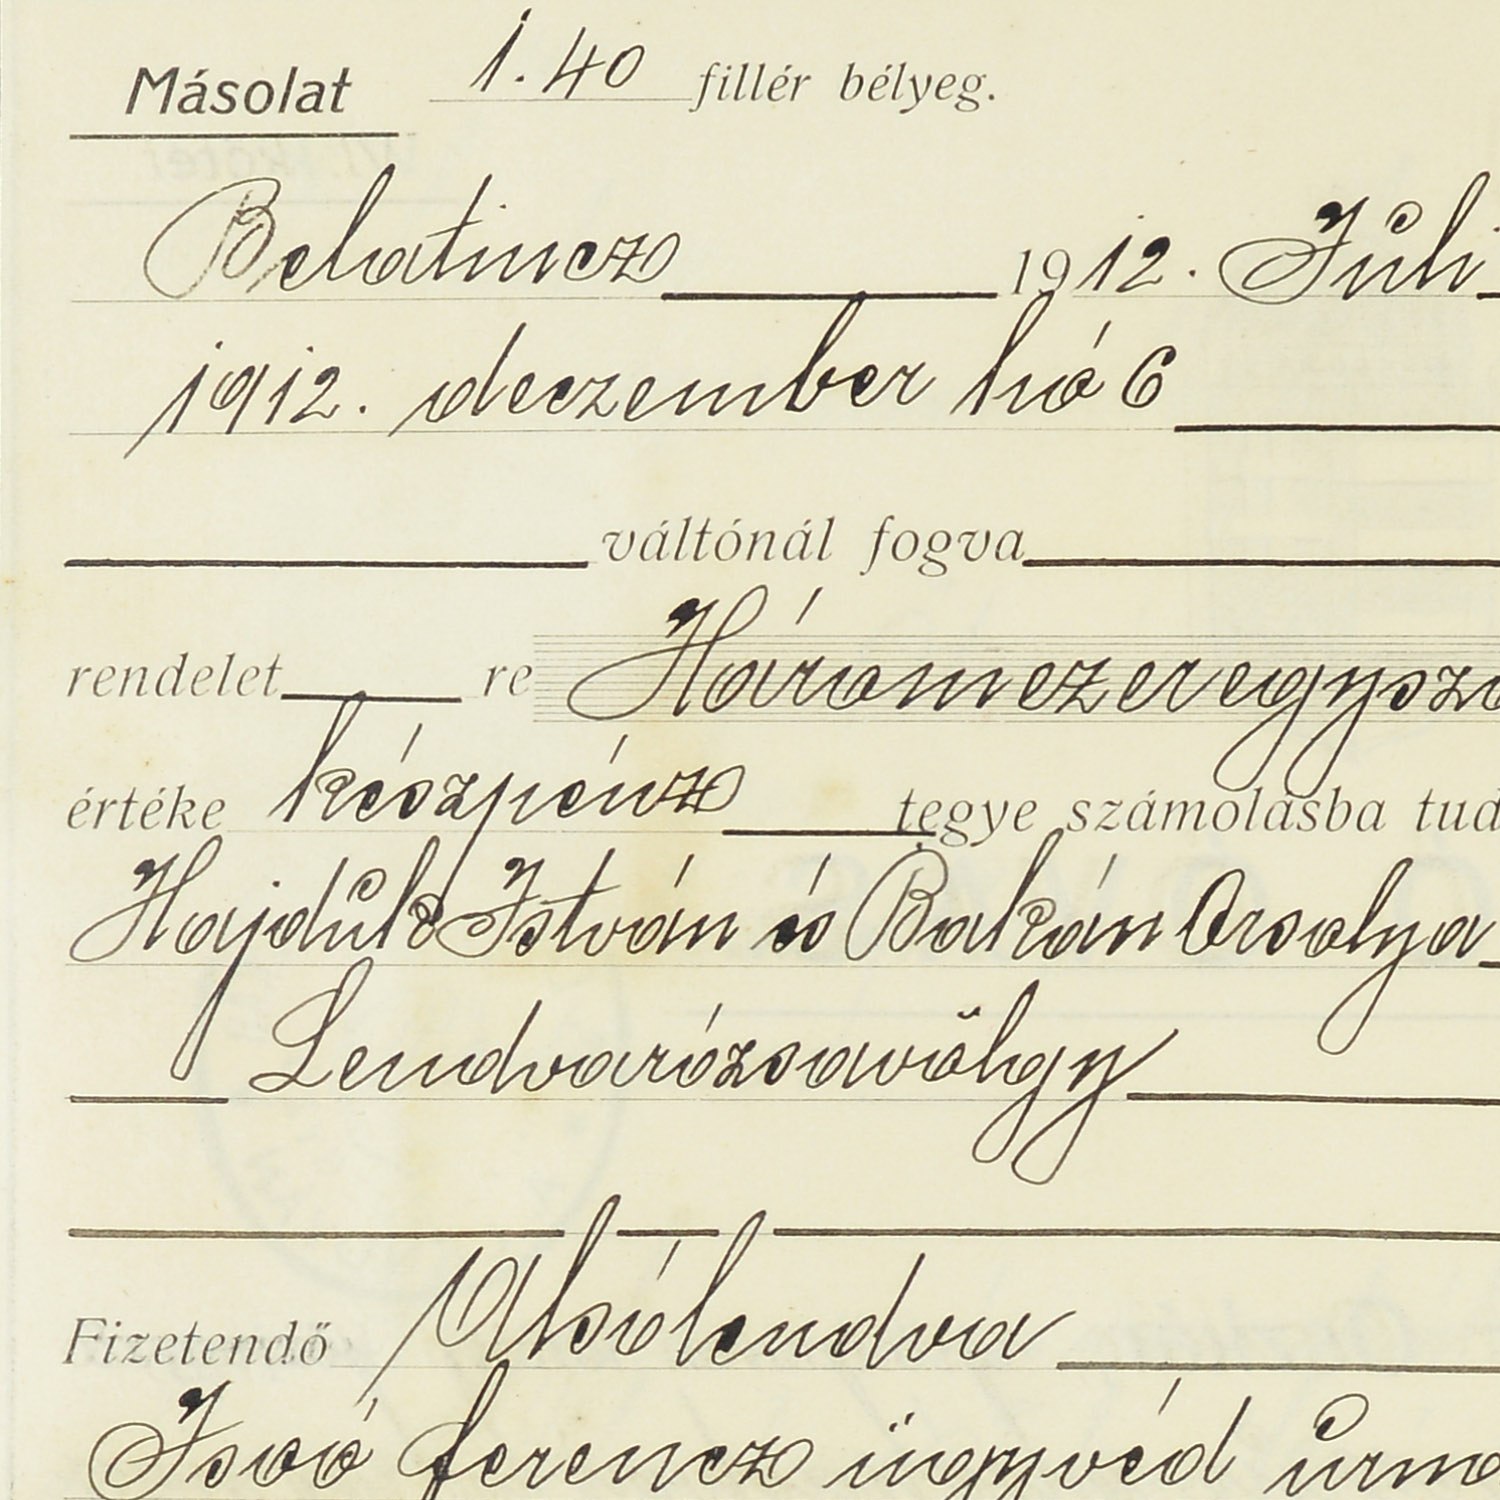 Másolat 1.40 fillér bélyeg.
Belatincz 1912. Júli
1912. deczember hó 6
váltónál fogva
rendelet re Háromezeregyszá
értéke készpénz tegye számolásba tud
Hajdúk István és Bakán Orsolya
Lendvarózsavölgy
Fizetendő Alsólendva
Isoó ferencz ügyvéd úrna